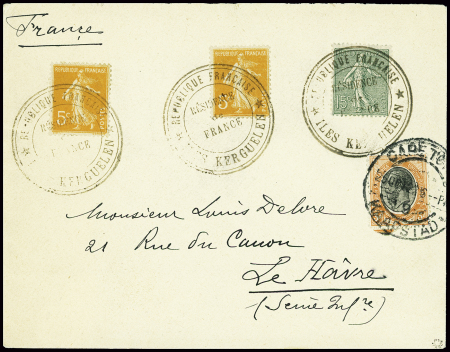 France
REPUBLIQUE FRANÇAISE
5c
REPUBLIQUE FRANÇAISE
RÉSIDENCE
DE
FRANCE
ILES KERGUELEN
REPUBLIQUE FRANÇAISE
RÉSIDENCE
DE
FRANCE
ILES KERGUELEN
REPUBLIQUE FRANÇAISE
RÉSIDENCE
ILES KERGUELEN
15c
CAPE TO
KAAPSTAD
Monsieur Louis Delore
21 Rue du Canon
Le Hâvre
(Seine Infre)